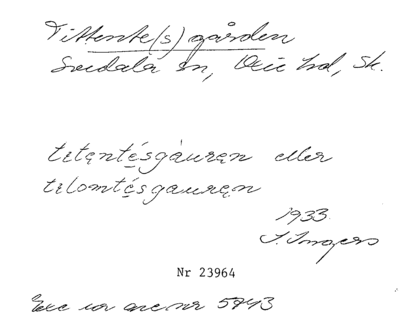 Tittente(s)gården
Svedala sn, Oxie hd, Sk.
tetentésgåuręn eller
telomtésgauręn
1933.
I. Ingers
Nr 23964
Exc ur acc nr 5743